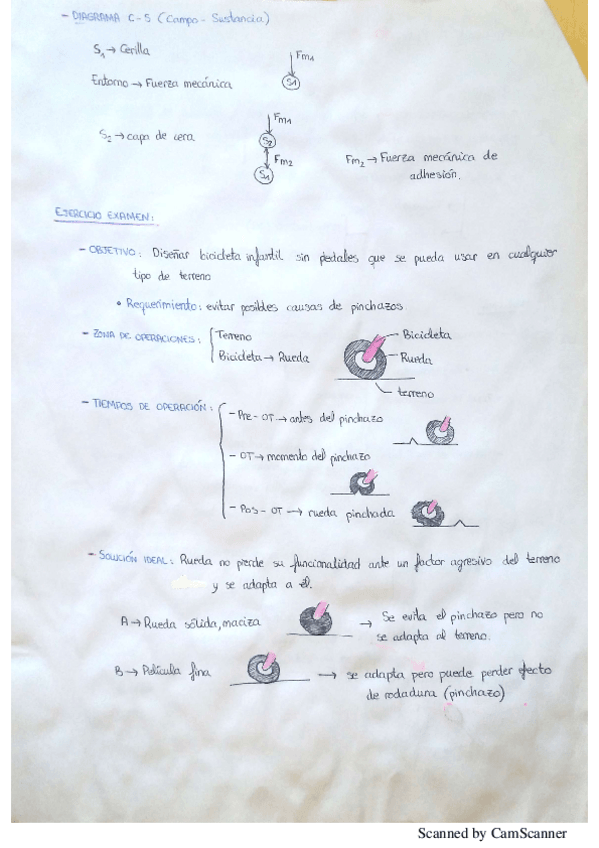 - DIAGRAMA C-S (Campo - Sustancia)
S1 → Cerilla
Fm1
Entorno → Fuerza mecánica
S1
Fm1
S2 → capa de cera
S2
Fm2
Fm2 → Fuerza mecánica de
adhesión.
S1
EJERCICIO EXAMEN:
- OBJETIVO: Diseñar bicicleta infantil sin pedales que se pueda usar en cualquier
tipo de terreno
• Requerimiento: evitar posibles causas de pinchazos
- ZONA DE OPERACIONES: Terreno
Bicicleta → Rueda
Bicicleta
Rueda
terreno
- TIEMPOS DE OPERACIÓN:
- Pre - OT → antes del pinchazo
- OT → momento del pinchazo
- Pos - OT → rueda pinchada
- SOLUCIÓN IDEAL: Rueda no pierde su funcionalidad ante un factor agresivo del terreno
y se adapta a él.
A → Rueda sólida, maciza
→ Se evita el pinchazo pero no
se adapta al terreno.
B → Película fina
→ se adapta pero puede perder efecto
de rodadura (pinchazo)
Scanned by CamScanner